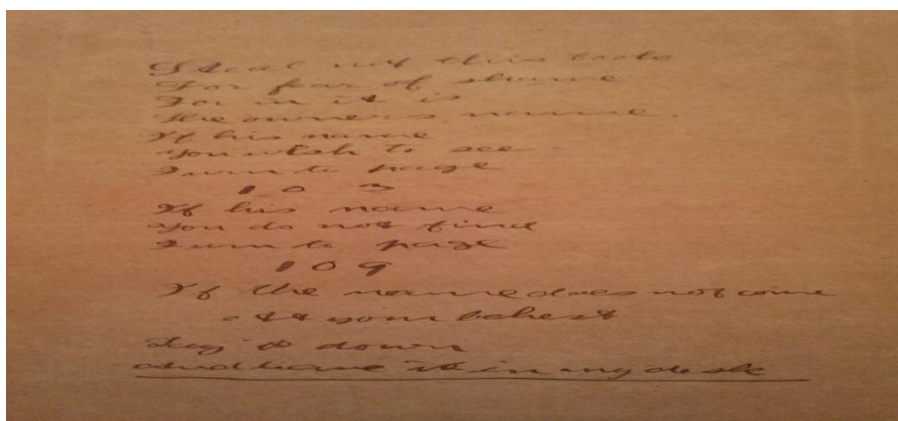 Steal not this book
For fear of shame
For in it is
the owners name.
If his name
you wish to see
Turn to page
1 0 3
If his name
you do not find
Turn to page
1 0 9
If the name does not come
at your behest
Lay it down
and leave it in my desk